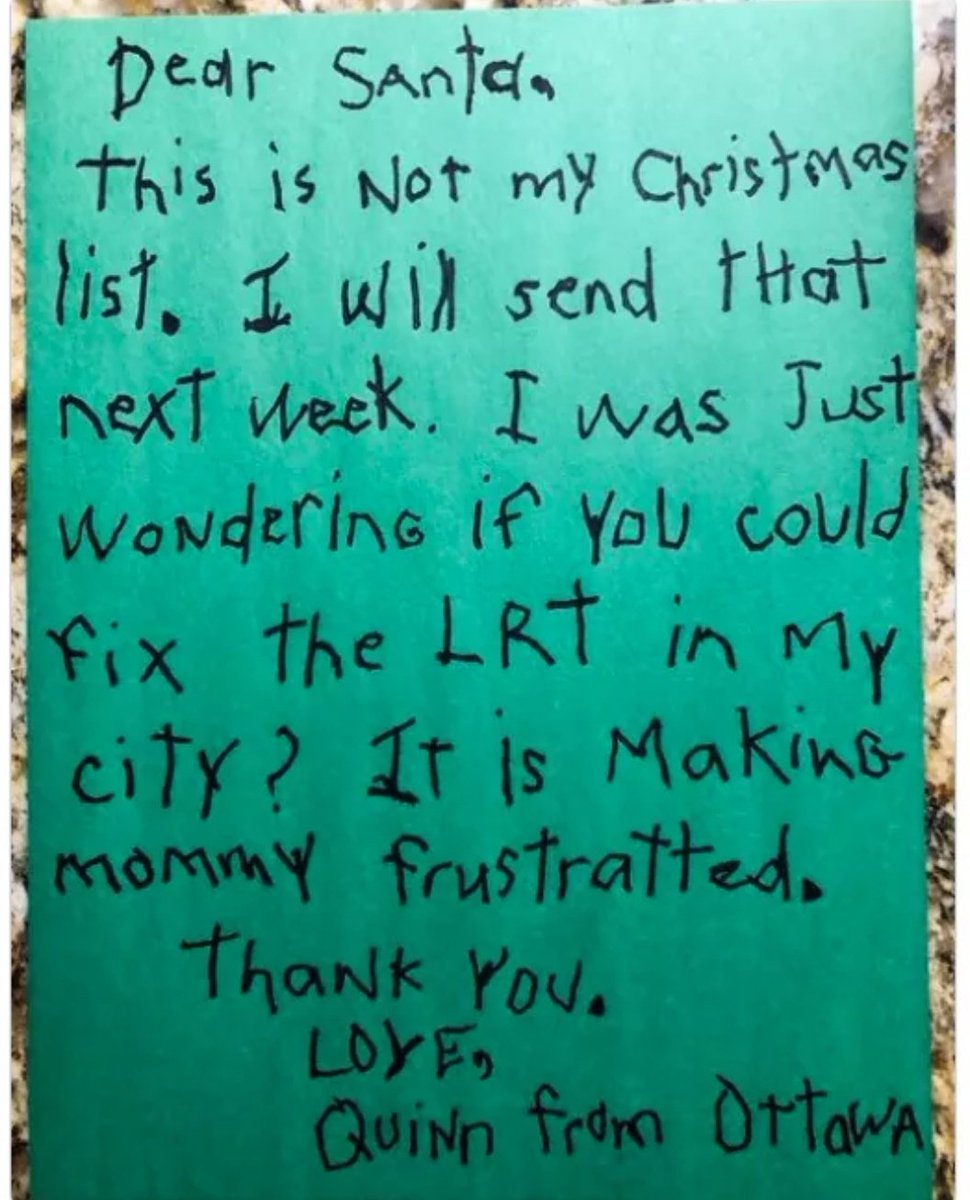 Dear Santa,
This is Not my Christmas
list. I will send tHat
next week. I was Just
WoNderinG if You could
Fix the LRT in My
city? It is MakinG
mommy frustratted.
ThaNk You.
LOVE,
QuiNn from OttawA